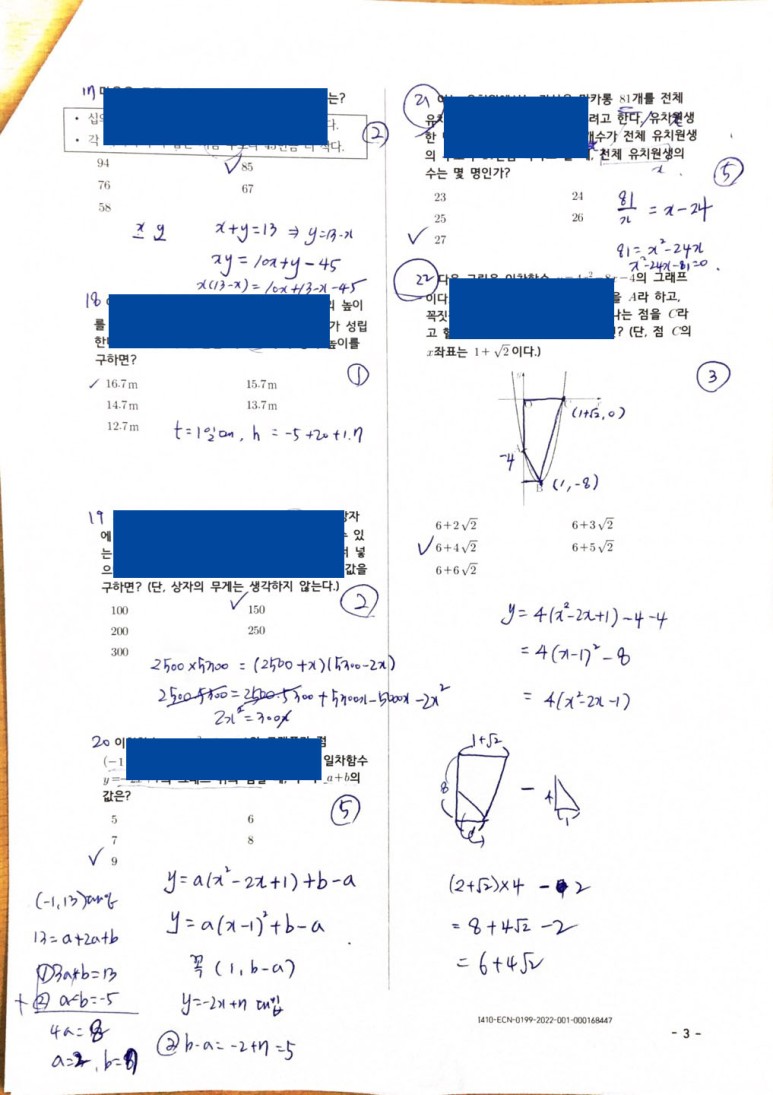 17
는?
십
다.
각
45만큼 더 작다.
②
94
85
76
67
58
x y
x+y=13 ⇒ y=13-x
xy=10x+y-45
x(13-x)=10x+13-x-45
18
의 높이
를
가 성립
한
높이를
구하면?
①
16.7m
15.7m
14.7m
13.7m
12.7m
t=1일 때, h = -5+20+1.7
19
상자
에
수 있
는
넣
으
값을
구하면? (단, 상자의 무게는 생각하지 않는다.)
②
100
150
200
250
300
2500×5300 = (2500+x)(5300-2x)
2500·5300=2500·5300+5300x-5000x-2x²
2x²=300x
20
(-1
일차함수
a+b의
값은?
⑤
5
6
7
8
9
(-1,13)대입
13=a+2a+b
①3a+b=13
+② a-b=-5
4a=8
y=a(x²-2x+1)+b-a
y=a(x-1)²+b-a
꼭 (1, b-a)
y=-2x+7 대입
②b-a=-2+7=5
21
81개를 전체
유
려고 한다. 유치원생
한
개수가 전체 유치원생
의
전체 유치원생의
x
수는 몇 명인가?
⑤
23
24
25
26
27
81/x = x-24
81=x²-24x
x²-24x-81=0
22
-4의 그래프
이다
을 A라 하고,
꼭짓
나는 점을 C라
고
? (단, 점 C의
x좌표는 1+√2이다.)
③
(1+√2,0)
-4
B
(1,-8)
6+2√2
6+3√2
6+4√2
6+5√2
6+6√2
y=4(x²-2x+1)-4-4
=4(x-1)²-8
=4(x²-2x-1)
1+√2
8
-
4
1
(2+√2)×4 - 2
=8+4√2-2
=6+4√2
I410-ECN-0199-2022-001-000168447
- 3 -